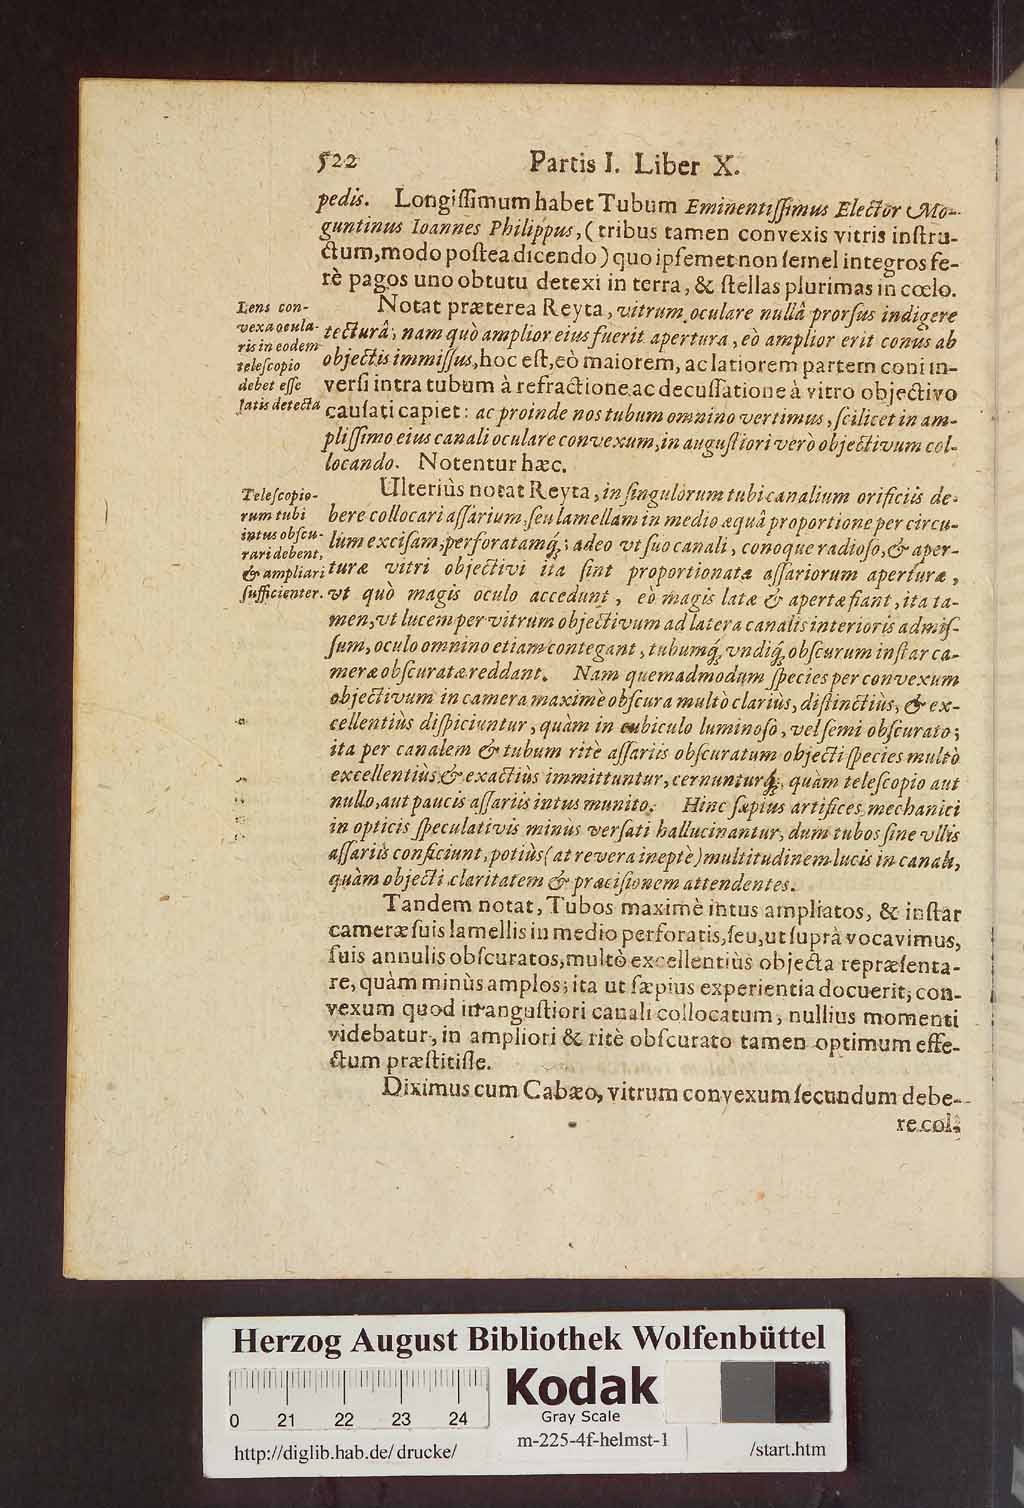 522 Partis I. Liber X.
pedis. Longiſſimum habet Tubum Eminentiſſimus Elector Mo-
guntinus Ioannes Philippus, (tribus tamen convexis vitris inſtru-
ctum, modo poſtea dicendo) quo ipſemet non ſemel integros fe-
rè pagos uno obtutu detexi in terra, & ſtellas plurimas in cœlo.
Lens con-
vexa ocula-
ris in eodem
teleſcopio
debet eſſe
ſatis detecta
Notat præterea Reyta, vitrum oculare nullâ prorſus indigere
tecturâ; nam quò amplior eius fuerit apertura, eò amplior erit conus ab
objectis immiſſus, hoc eſt, eò maiorem, ac latiorem partem coni in-
verſi intra tubum à refractione ac decuſſatione à vitro objectivo
cauſati capiet: ac proinde nos tubum omnino vertimus, ſcilicet in am-
pliſſimo eius canali oculare convexum, in auguſtiori verò objectivum col-
locando. Notentur hæc.
Teleſcopio-
rum tubi
intus obſcu-
rari debent,
& ampliari
ſufficienter.
Ulteriùs notat Reyta, in ſingulorum tubi canalium orificiis de-
bere collocari aſſarium, ſeu lamellam in medio æquâ proportione per circu-
lum exciſam, perforatamq́; adeo vt ſuo canali, conoque radioſo, & aper-
turæ vitri objectivi ita ſint proportionata aſſariorum aperturæ,
vt quò magis oculo accedunt, eò magis latæ & apertæ fiant, ita ta-
men, vt lucem per vitrum objectivum ad latera canalis interioris admiſ-
ſum, oculo omnino etiam contegant, tubumq́, vndiq́, obſcurum inſtar ca-
meræ obſcuratæ reddant. Nam quemadmodum ſpecies per convexum
objectivum in camera maximè obſcura multò clariùs, diſtinctiùs, & ex-
cellentiùs diſpiciuntur, quàm in cubiculo luminoſo, vel ſemi obſcurato;
ita per canalem & tubum ritè aſſariis obſcuratum objecti ſpecies multò
excellentiùs & exactiùs immittuntur, cernunturq́;, quàm teleſcopio aut
nullo, aut paucis aſſariis intus munito. Hinc ſæpius artifices mechanici
in opticis ſpeculativis minùs verſati hallucinantur, dum tubos ſine vllis
aſſariis conficiunt, potiùs (at revera ineptè) multitudinem lucis in canali,
quàm objecti claritatem & præciſionem attendentes.
Tandem notat, Tubos maximè intus ampliatos, & inſtar
cameræ ſuis lamellis in medio perforatis, ſeu, ut ſuprà vocavimus,
ſuis annulis obſcuratos, multò excellentiùs objecta repræſenta-
re, quàm minùs amplos; ita ut ſæpius experientia docuerit, con-
vexum quod in anguſtiori canali collocatum, nullius momenti
videbatur, in ampliori & ritè obſcurato tamen optimum effe-
ctum præſtitiſſe.
Diximus cum Cabæo, vitrum convexum ſecundum debe-
re col-
Herzog August Bibliothek Wolfenbüttel
0 21 22 23 24
Kodak
Gray Scale
http://diglib.hab.de/drucke/
m-225-4f-helmst-1
/start.htm